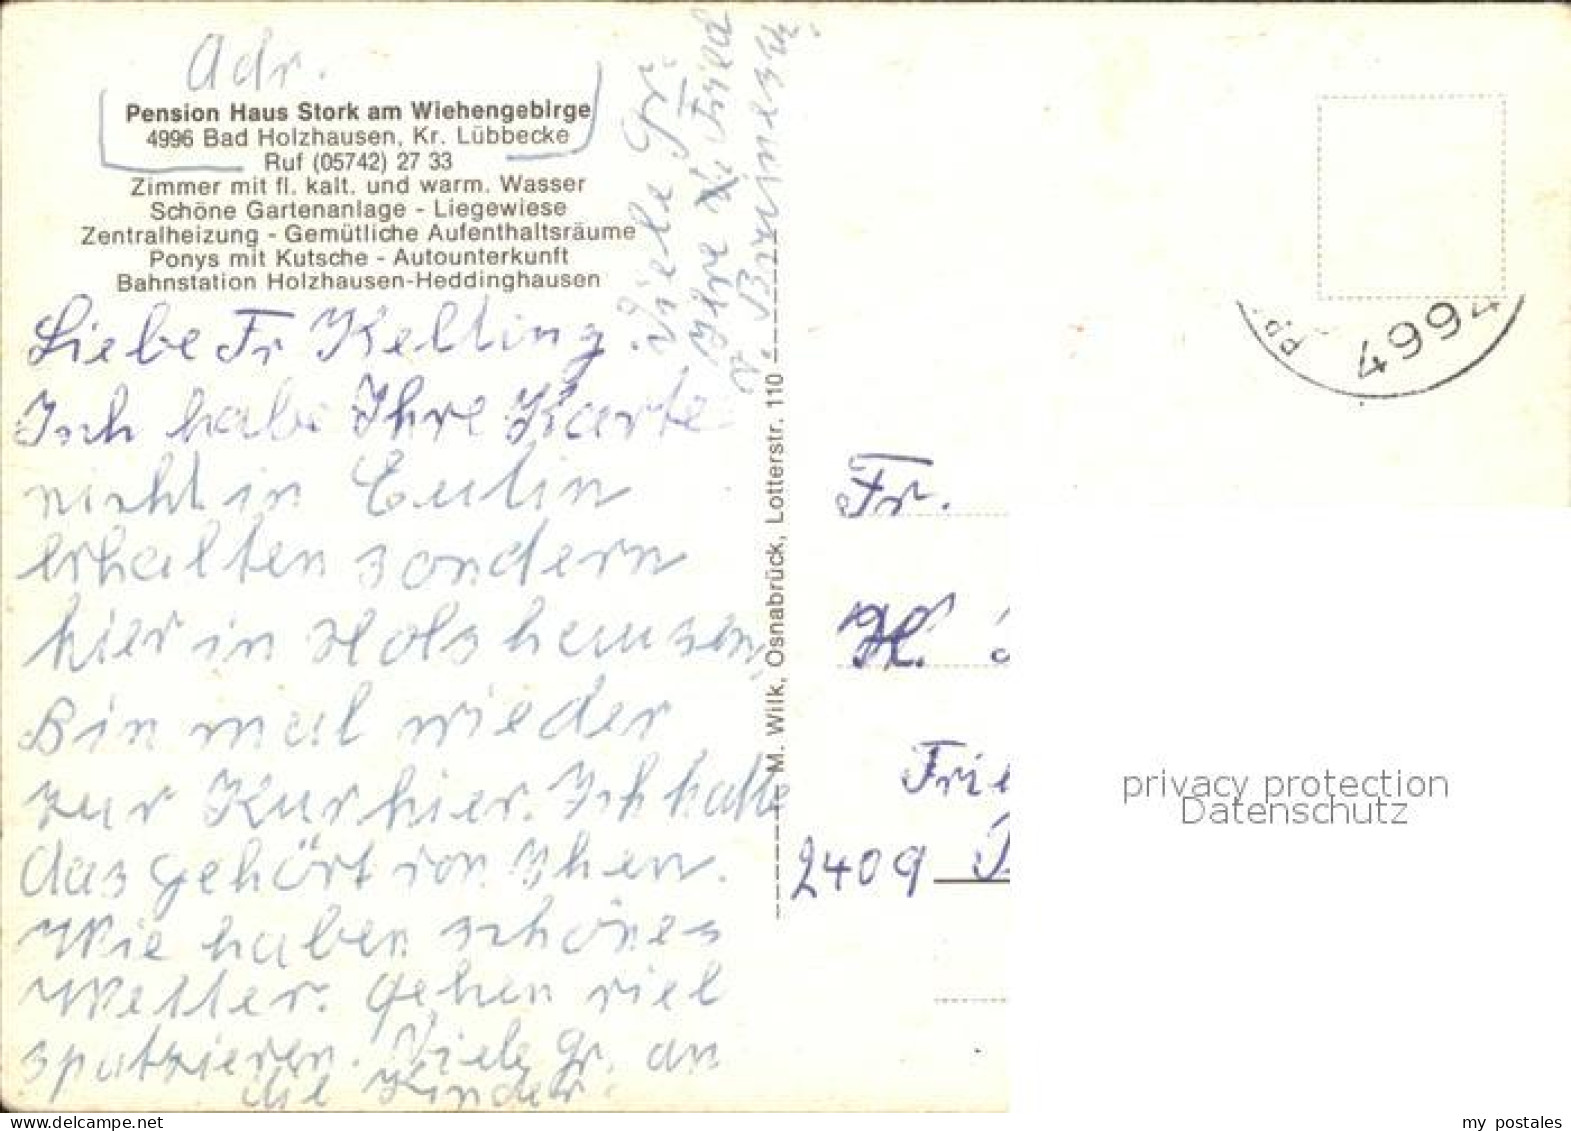 Adr.
Pension Haus Stork am Wiehengebirge
4996 Bad Holzhausen, Kr. Lübbecke
Ruf (05742) 27 33
Zimmer mit fl. kalt. und warm. Wasser
Schöne Gartenanlage - Liegewiese
Zentralheizung - Gemütliche Aufenthaltsräume
Ponys mit Kutsche - Autounterkunft
Bahnstation Holzhausen-Heddinghausen
Liebe Fr Kelling.
Ich habe Ihre Karte
nicht in Eutin
erhalten sondern
hier in Holshausen,
Bin mal wieder
zur Kur hier. Ich hatte
das gehört von Ihnen.
Wie haben schönes
Wetter. Gehen viel
spatzieren. Viele Gr. an
die Kinder.
Viele Gr.
Ihre
M. Wilk, Osnabrück, Lotterstr. 110
4994
Fr.
H.
Frie
2409
privacy protection
Datenschutz
www.delcampe.net
my_postales